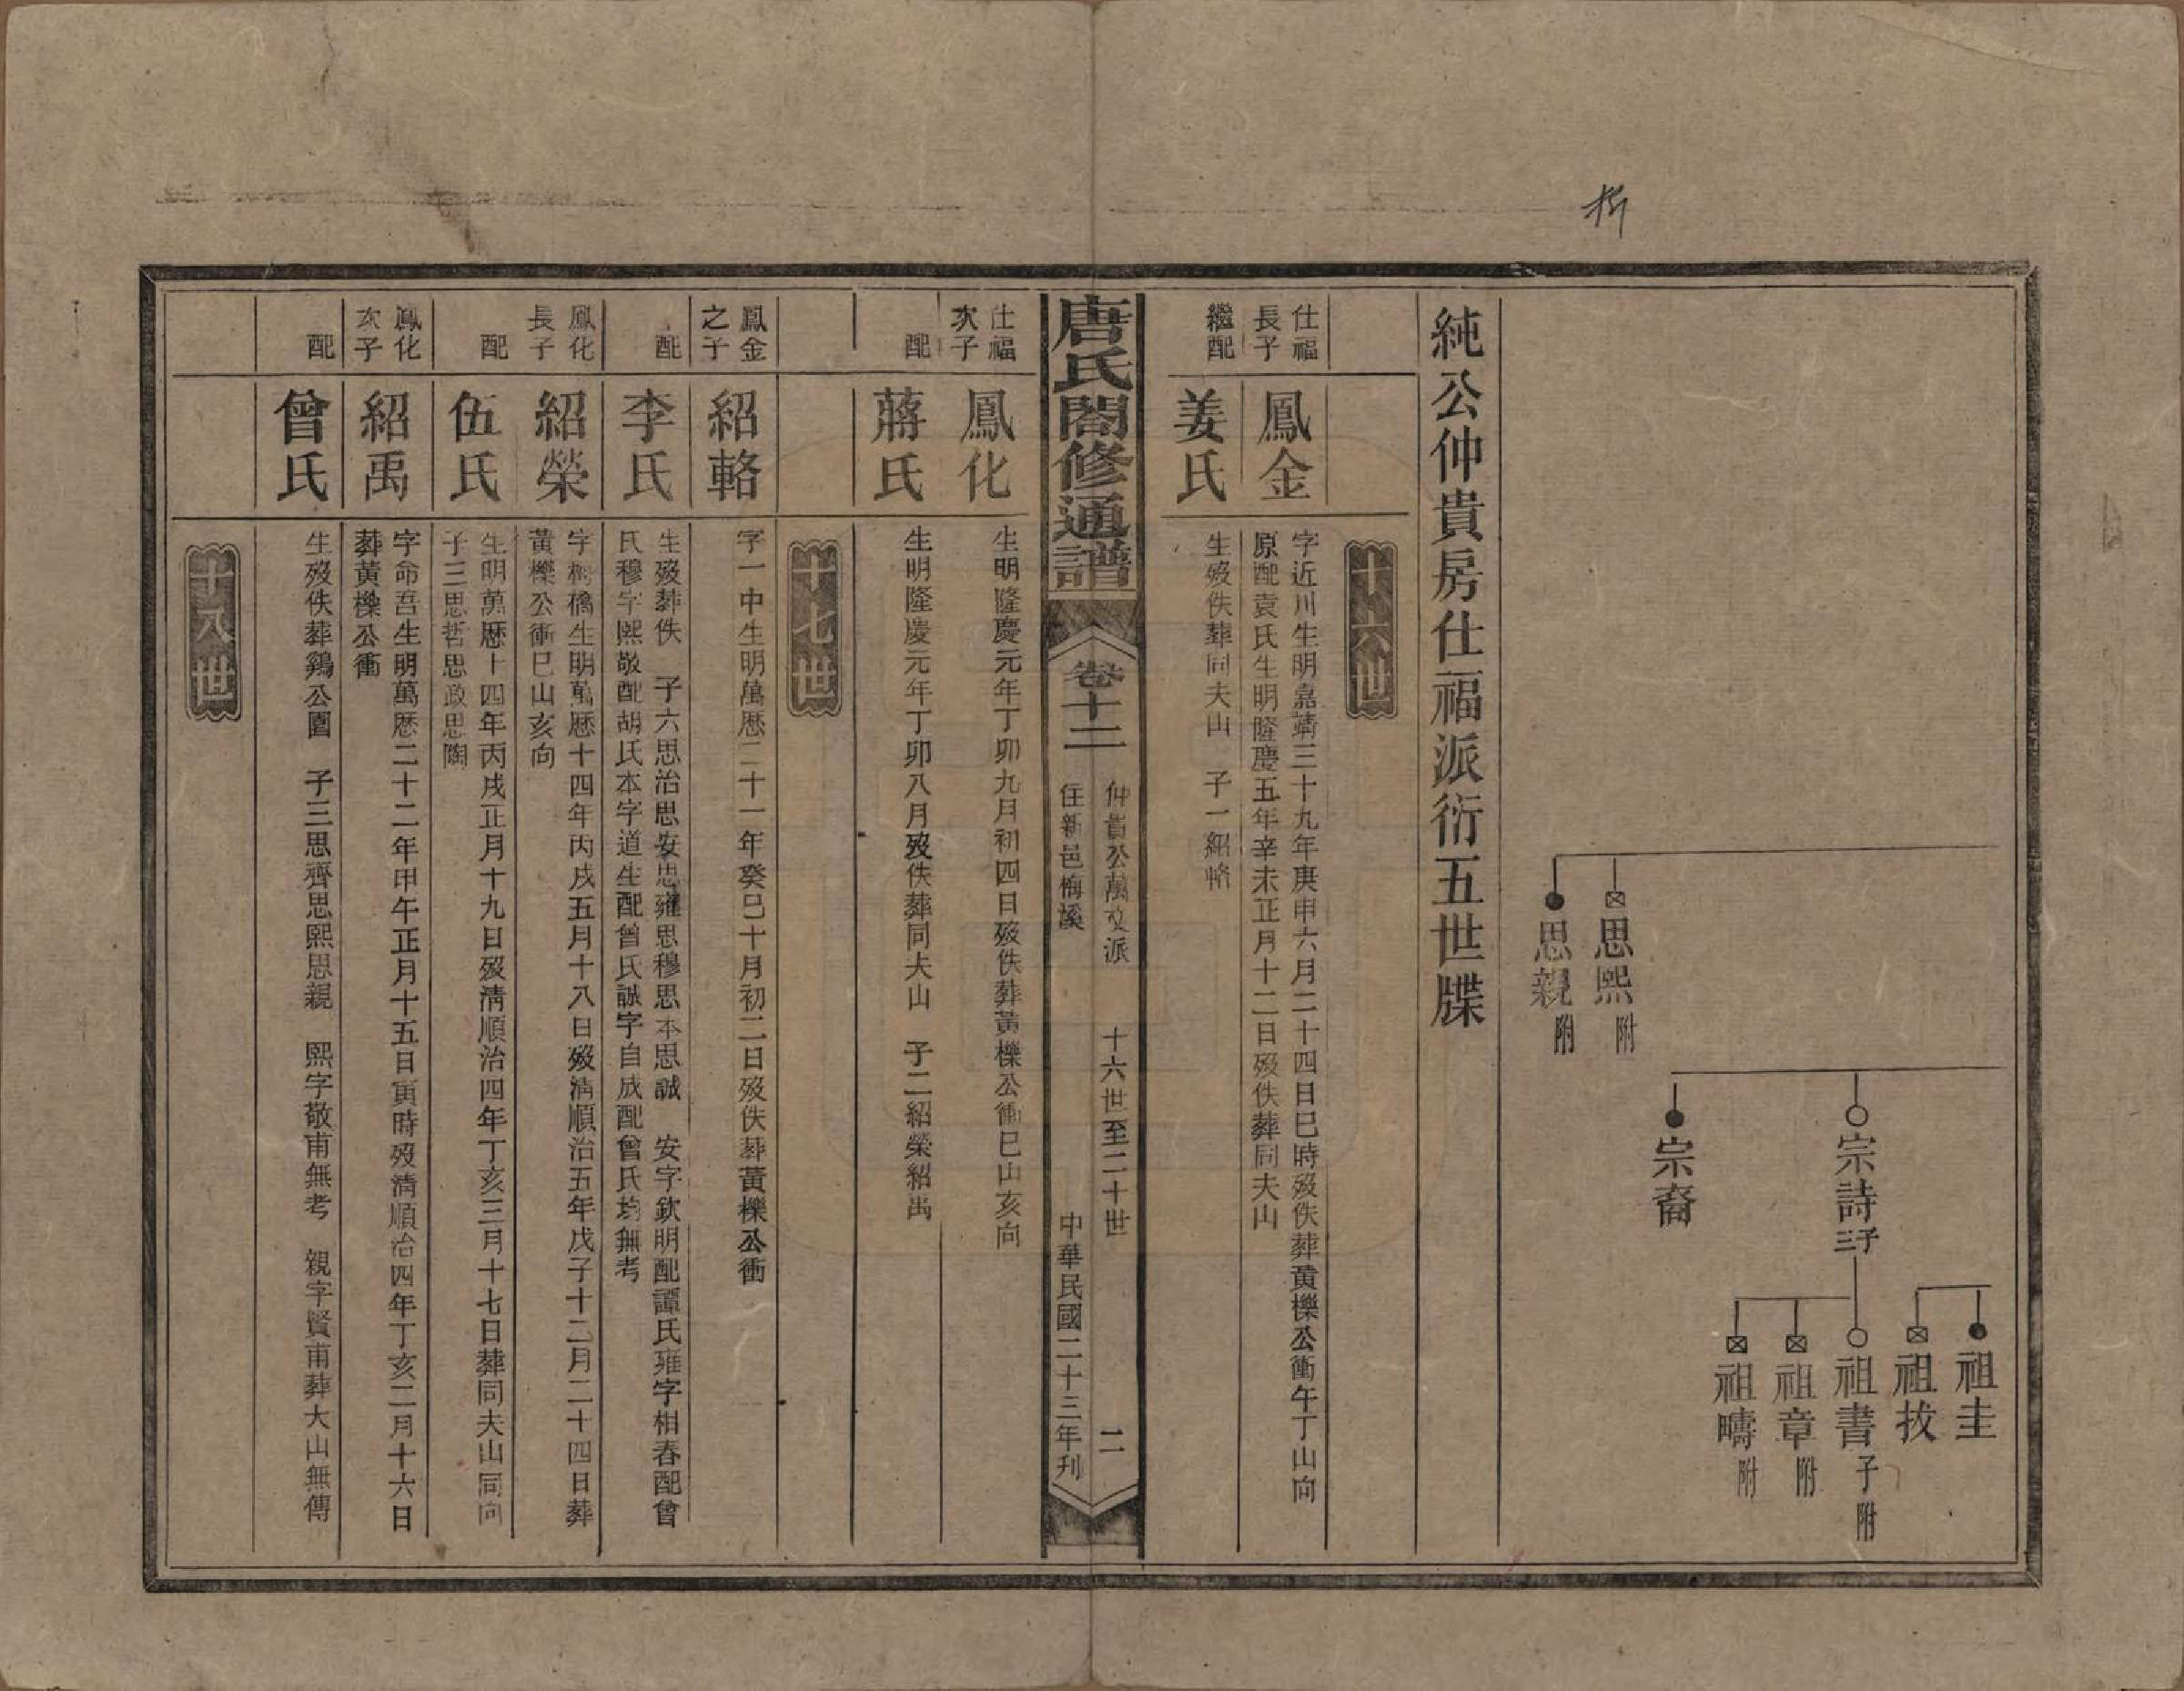 祖圭
祖拔
宗詩 三子
祖書 子附
祖章 附
祖疇 附
宗裔
思熙 附
思親 附
純公仲貴房仕福派衍五世牒
十六世
仕福長子
鳳金
字近川生明嘉靖三十九年庚申六月二十四日巳時歿佚葬黃櫟公衝午丁山向
原配袁氏生明隆慶五年辛未正月十二日歿佚葬同夫山
繼配
姜氏
生歿佚葬同夫山 子一紹輅
唐氏閤修通譜
卷十二
仲貴公萬文派 十六世至二十世 二
住新邑梅溪 中華民國二十三年刊
仕福次子
鳳化
生明隆慶元年丁卯九月初四日歿佚葬黃櫟公衝巳山亥向
配
蔣氏
生明隆慶元年丁卯八月歿佚葬同夫山 子二紹榮紹禹
十七世
鳳金之子
紹輅
字一中生明萬歷二十一年癸巳十月初二日歿佚葬黃櫟公衝
配
李氏
生歿葬佚 子六思治思安思雍思穆思本思誠 安字欽明配譚氏雍字相春配曾
氏穆字熙敬配胡氏本字道生配曾氏誠字自成配曾氏均無考
鳳化長子
紹榮
字樹橋生明萬歷十四年丙戌五月十八日歿淸順治五年戊子十二月二十四日葬
黃櫟公衝巳山亥向
配
伍氏
生明萬歷十四年丙戌正月十九日歿淸順治四年丁亥三月十七日葬同夫山同向
子三思哲思政思陶
鳳化次子
紹禹
字命吾生明萬歷二十二年甲午正月十五日寅時歿淸順治四年丁亥二月十六日
葬黃櫟公衝
配
曾氏
生歿佚葬鷄公圊 子三思齊思熙思親 熙字敬甫無考 親字賢甫葬大山無傳
十八世